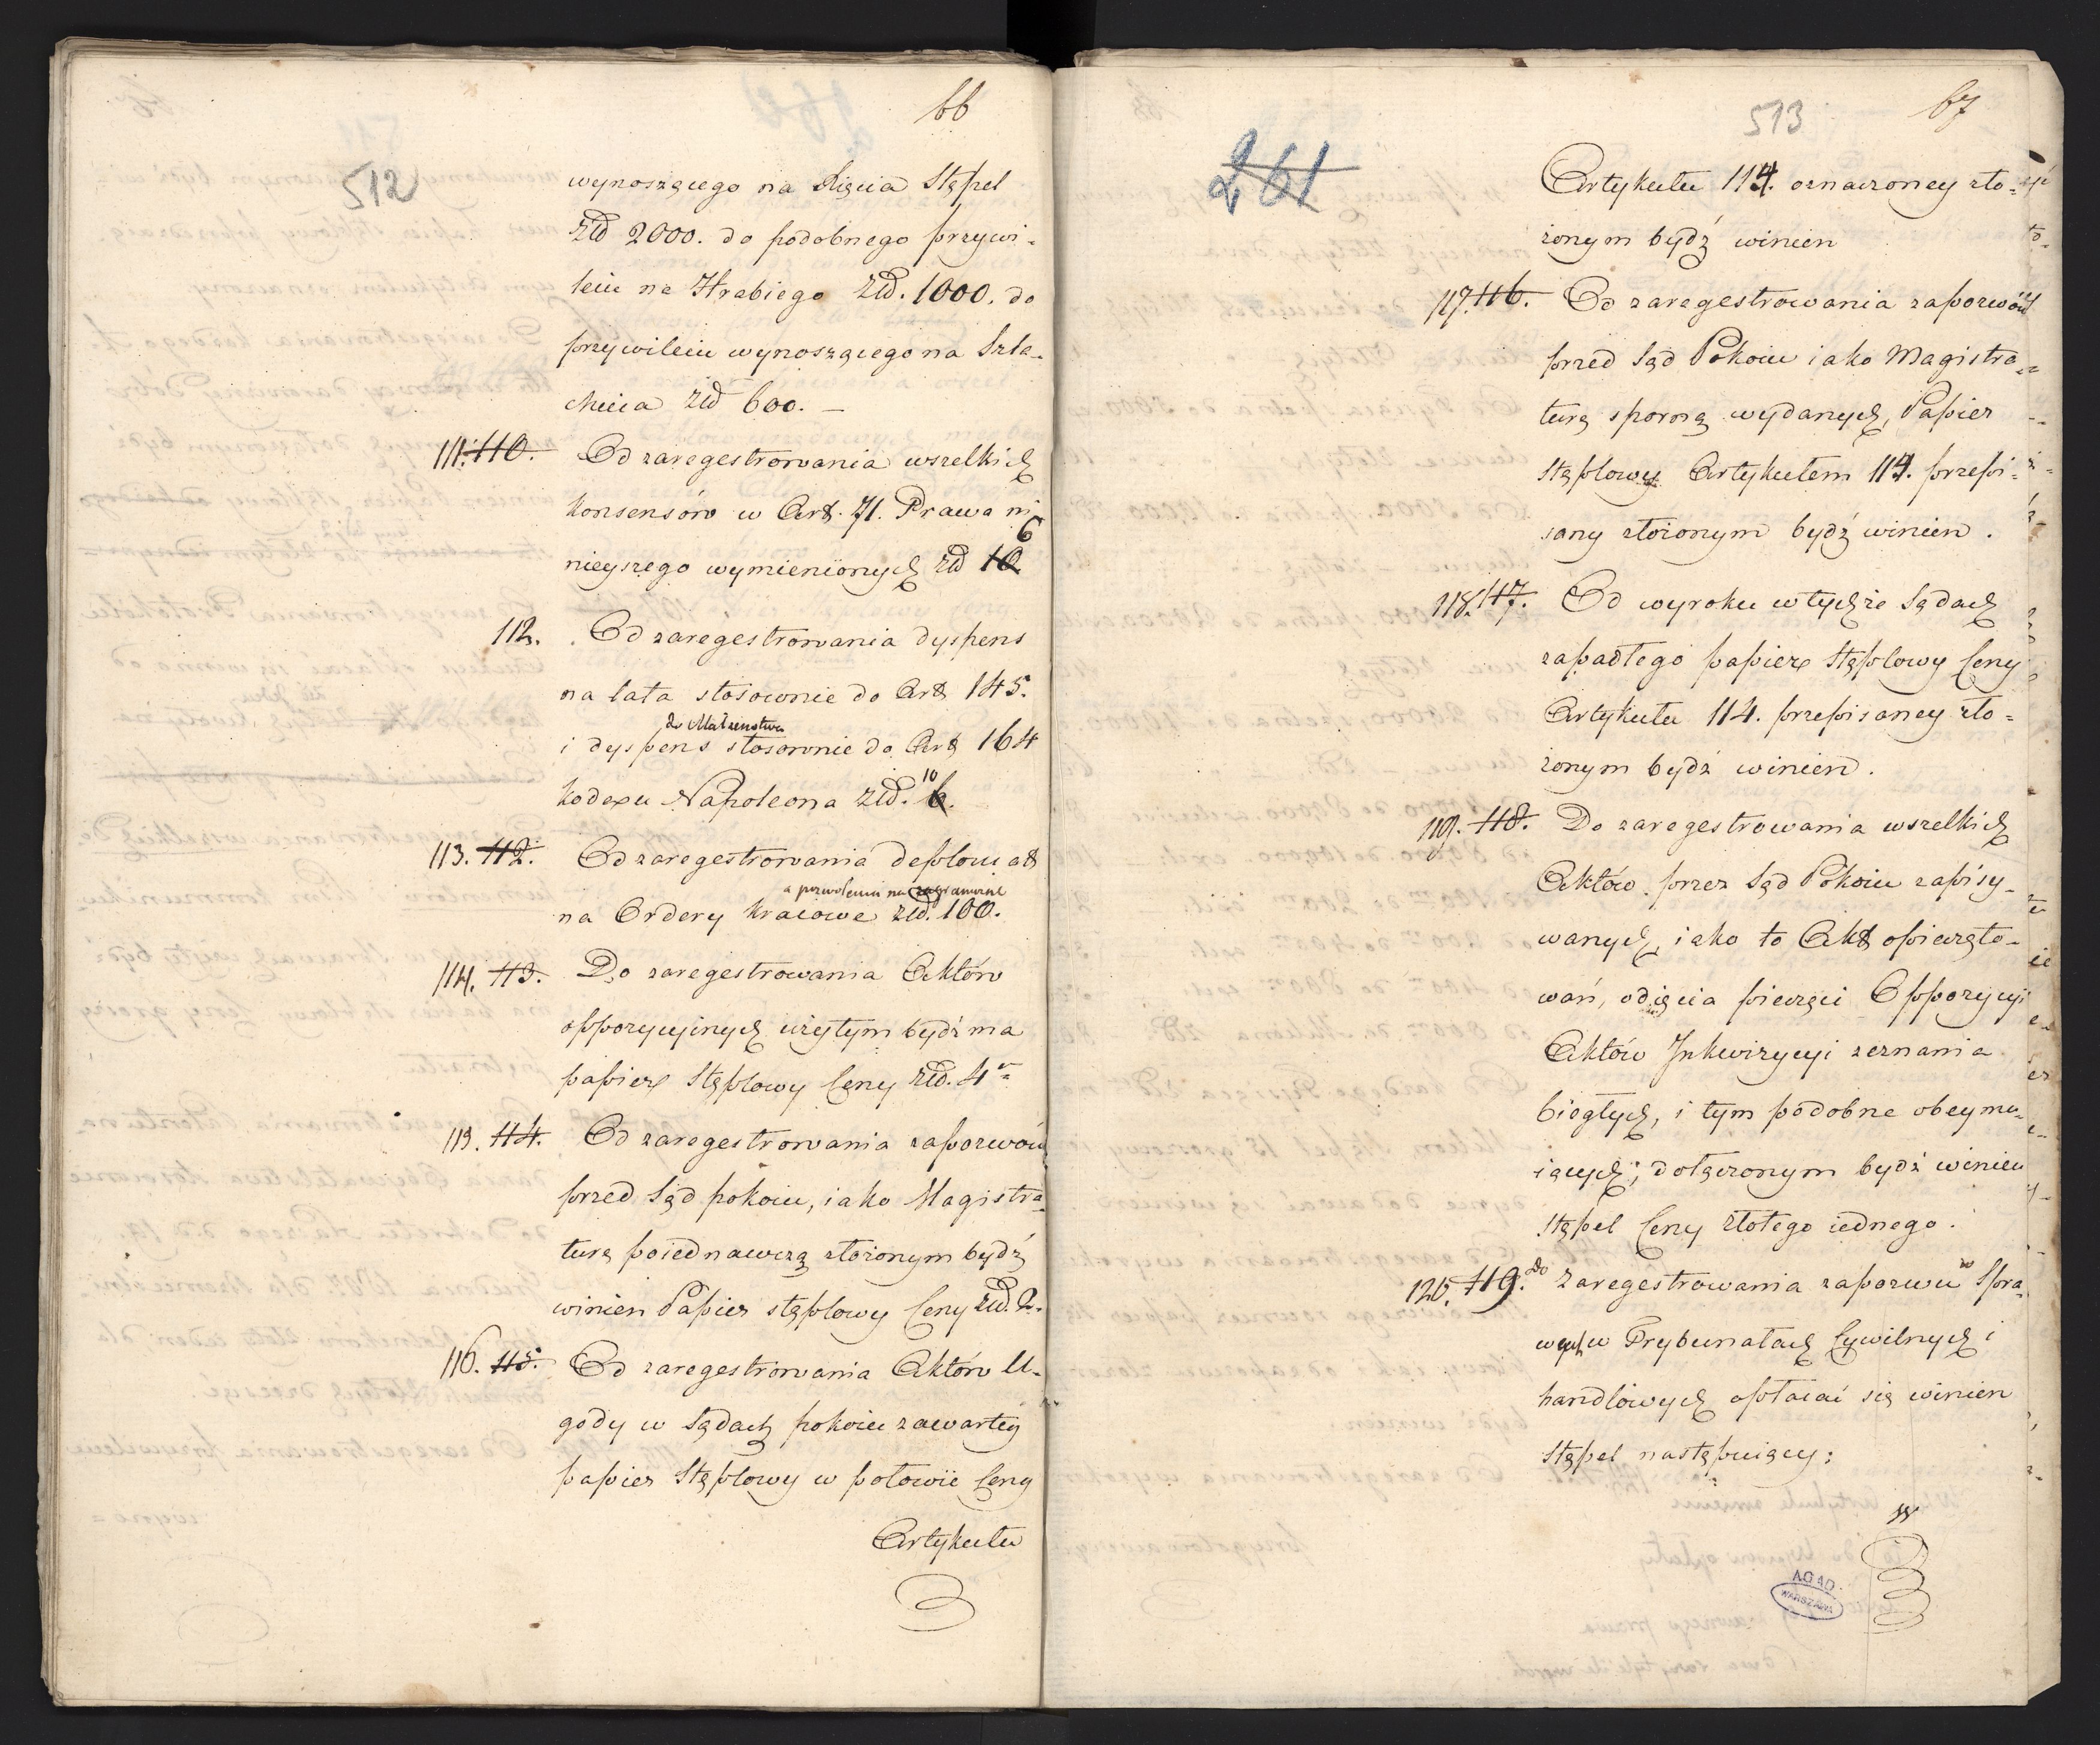 66
512
wynoszącego na Xięcia Stępel
Złł 2000. do podobnego przywi-
leiu na Hrabiego Złł. 1000. do
przywileiu wynoszącego na Szla-
chcica złł 600. —
111. 110. Od zaregestrowania wszelkich
konsensów w Art. 71. Prawa ni
6
nieyszego wymienionych złł 10
112. Od zaregestrowania dyspens
na lata stosownie do Art 145.
do Małżenstwa
i dyspens stosownie do Art 164
10
kodexu Napoleona złł. 6.
113. 112. Od zaregestrowania deplomat
a pozwoleniu na zagraniczne
na Ordery kraiowe złł. 100.
114. 113. Do zaregestrowania Aktów
oppozycyinych użytym bydź ma
papier Stęplowy Ceny złł. 4
115. 114. Od zaregestrowania zapozwów
przed Sąd pokoiu, iako Magistra-
turę poiednawczą złożonym bydź
winien Papier stęplowy Ceny złł. 2.
116. 115. Od zaregestrowania Aktów U-
gody w Sądach pokoiu zawartey
papier Stęplowy w połowie Ceny
Artykułu
67
513
261
Artykułu 114. oznaczoney zło-
żonym bydź winien
117. 116. Od zaregestrowania zapozwów
przed Sąd Pokoiu iako Magistra-
turę sporną wydanych, Papier
stęplowy Artykułem 114. przepi-
sany złożonym bydź winien.
118. 117. Od wyroku w tychże Sądach
zapadłego papier Stęplowy Ceny
Artykułu 114. przepisaney zło-
żonym bydź winien.
119. 118. Do zaregestrowania wszelkich
Aktów przez Sąd Pokoiu zapisy-
wanych, iako to Akt opieczęto-
wań, odięcia pieczęci Oppozycyi
Aktów Inkwizycyi zeznania
biegłych, i tym podobne obeymu-
iących; dołączonym bydź winien
Stępel Ceny złotego iednego.
120. 119. do Zaregestrowania zapozwu w Spra-
wach w Trybunałach Cywilnych i
handlowych opłacać się winien
Stępel następuiący:
AGAD
WARSZAWA